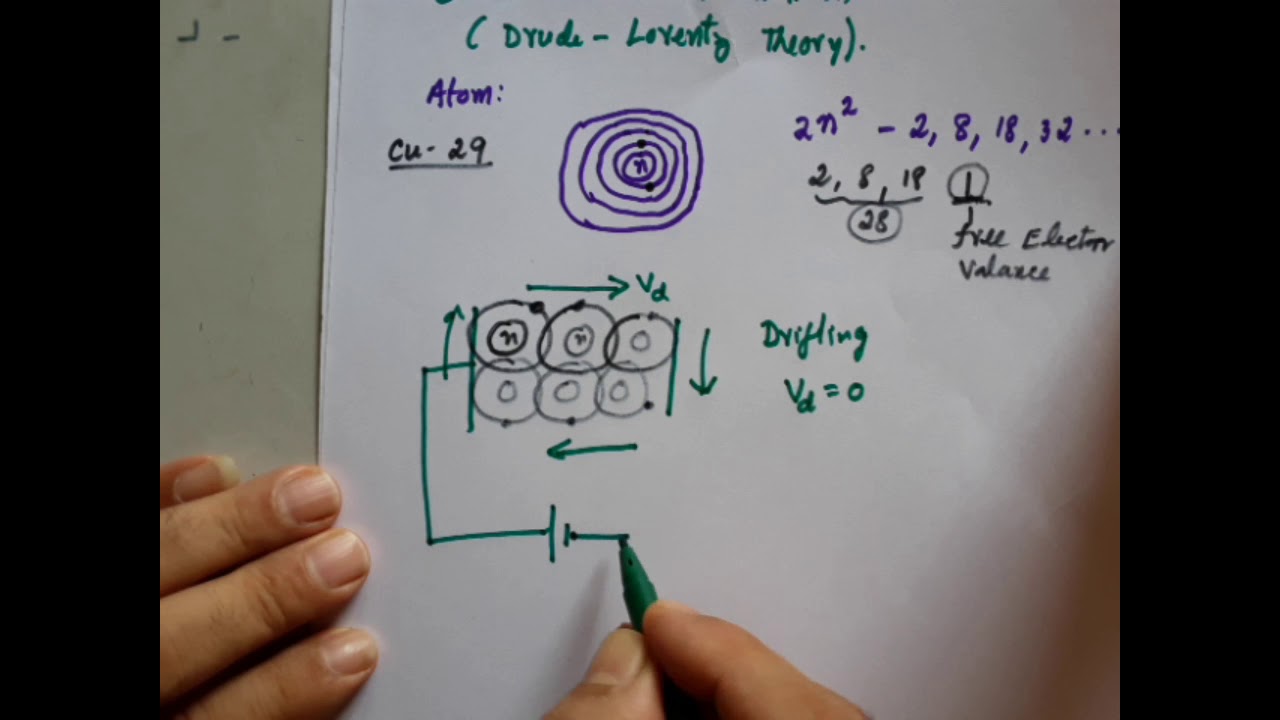 ( Drude - Lorentz Theory).
Atom:
Cu - 29
n
2n² - 2, 8, 18, 32 ...
2, 8, 18 1
28
free Electron
Valance
Vd
n n
Drifting
Vd = 0